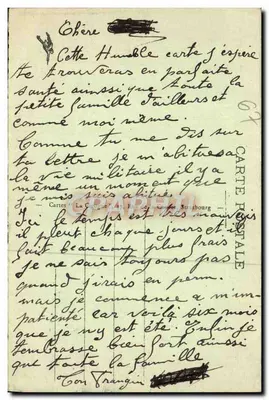 Chère
Cette Humble carte j'espère
te trouveras en parfaite
santé ainssi que toute la
petite famille d'ailleurs et
comme moi même.
Comme tu me dis sur
ta lettre je m'abitues a
la vie militaire il y a
même un moment que
je
Ici le temps est très mauvais
il pleut chaque jours et il
fait beaucoup plus frais
je ne sais toujours pas
quand j'irais en perm.
mais je commence a m'im-
patienté car voilà six mois
que je ny est été. Enfin je
t'embrasse bien fort ainssi
que toute la famille
Ton Frangin
67
CARTE POSTALE